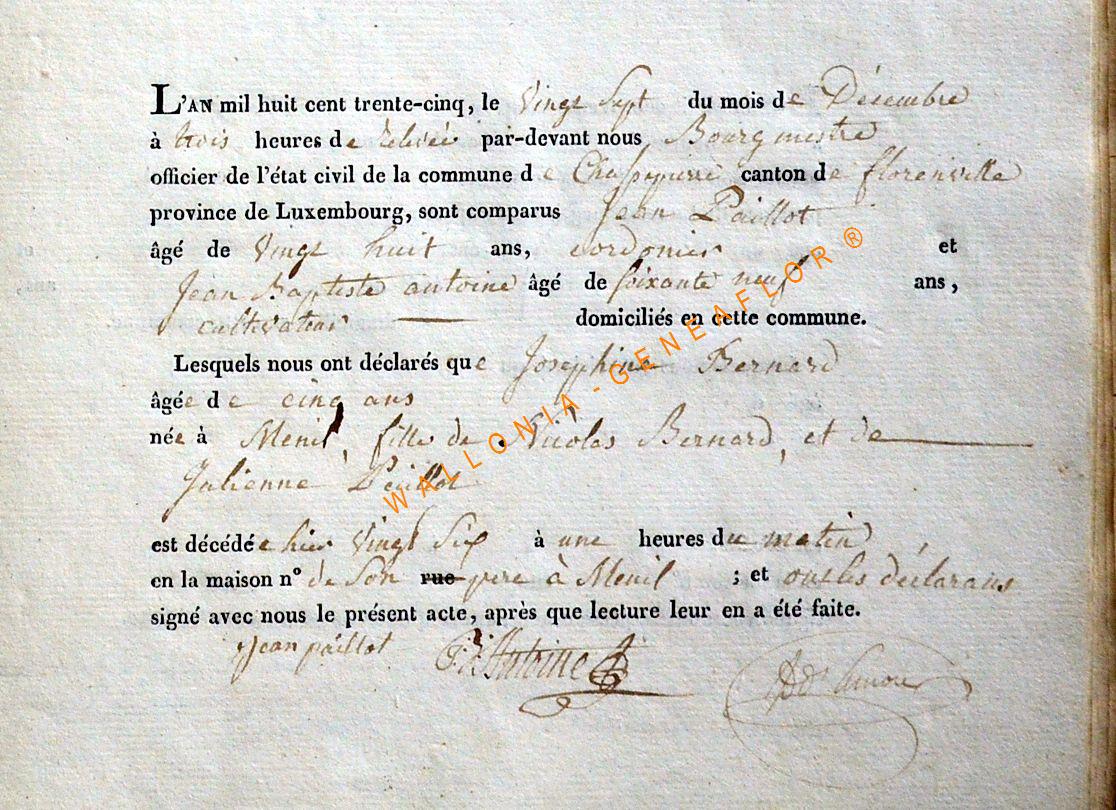 L'AN mil huit cent trente-cinq, le Vingt Sept du mois de Décembre
à trois heures de relevée par-devant nous Bourgmestre
officier de l'état civil de la commune de Chassepierre canton de florenville
province de Luxembourg, sont comparus Jean Paillot
âgé de Vingt huit ans, cordonier et
Jean Baptiste antoine âgé de soixante neuf ans,
cultivateur domiciliés en cette commune.
Lesquels nous ont déclarés que Josephine Bernard
âgée de cinq ans
née à Menil, fille de Nicolas Bernard, et de
Julienne Paillot
est décédée hier Vingt Six à une heures du matin
en la maison nº de Son rue pere à Menil ; et ont les déclarans
signé avec nous le présent acte, après que lecture leur en a été faite.
Jean paillot J.B. Antoine
WALLONIA-GENEAFLOR ®